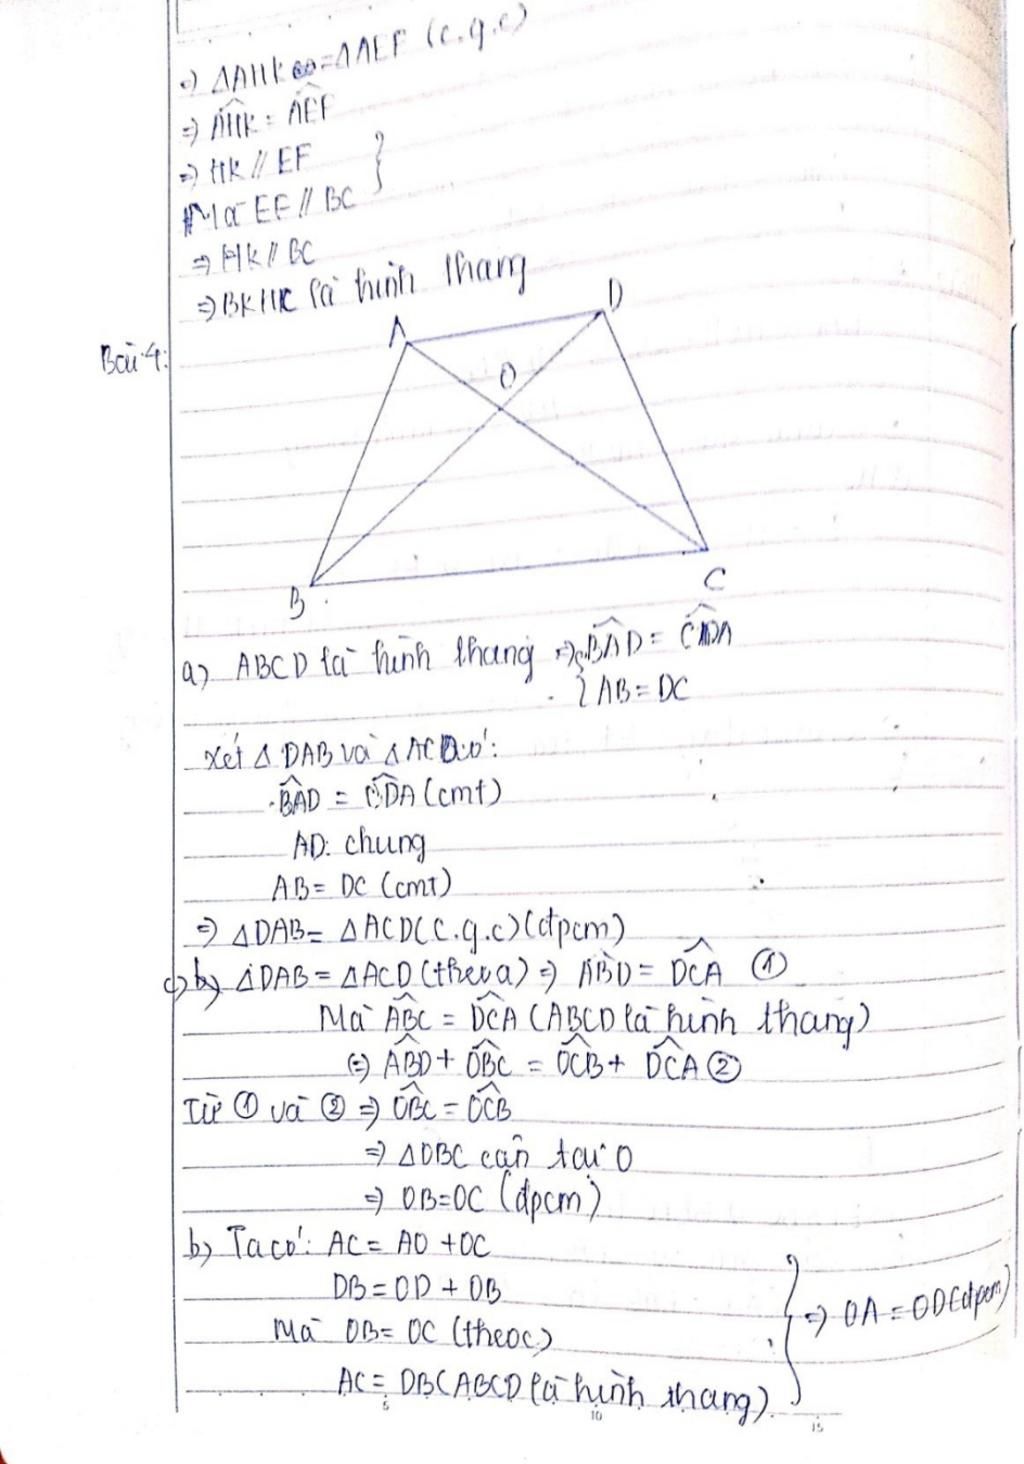 => ΔAHK = ΔAEF (c.g.c)
=> AHK = AEF
=> HK // EF
Mà EF // BC
=> HK // BC
=> BKHC là hình thang
Bài 4:
A
D
O
B
C
a) ABCD là hình thang => BAD = CDA
AB = DC
Xét Δ DAB và Δ ACD có:
BAD = CDA (cmt)
AD: chung
AB = DC (cmt)
=> ΔDAB = ΔACD (c.g.c) (đpcm)
c) ΔDAB = ΔACD (theo a) => ABD = DCA ①
Mà ABC = DCA (ABCD là hình thang)
(=) ABD + OBC = OCB + DCA ②
Từ ① và ② => OBC = OCB
=> ΔOBC cân tại O
=> OB = OC (đpcm)
b) Ta có: AC = AO + OC
DB = OD + OB
Mà OB = OC (theo c)
AC = DB (ABCD là hình thang)
=> OA = OD (đpcm)
5 10 15